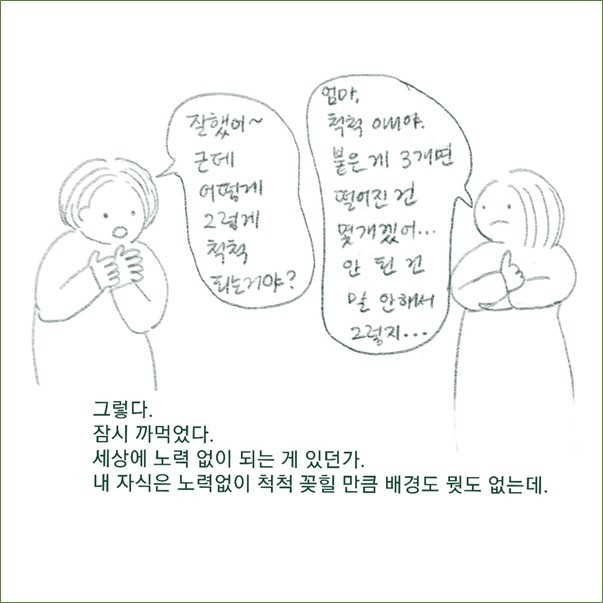 잘했어~
근데
어떻게
그렇게
척척
되는거야?
엄마,
척척 아니야.
붙은 게 3개면
떨어진 건
몇개겠어...
안 된 건
말 안해서
그렇지...
그렇다.
잠시 까먹었다.
세상에 노력 없이 되는 게 있던가.
내 자식은 노력없이 척척 꽂힐 만큼 배경도 뭣도 없는데.